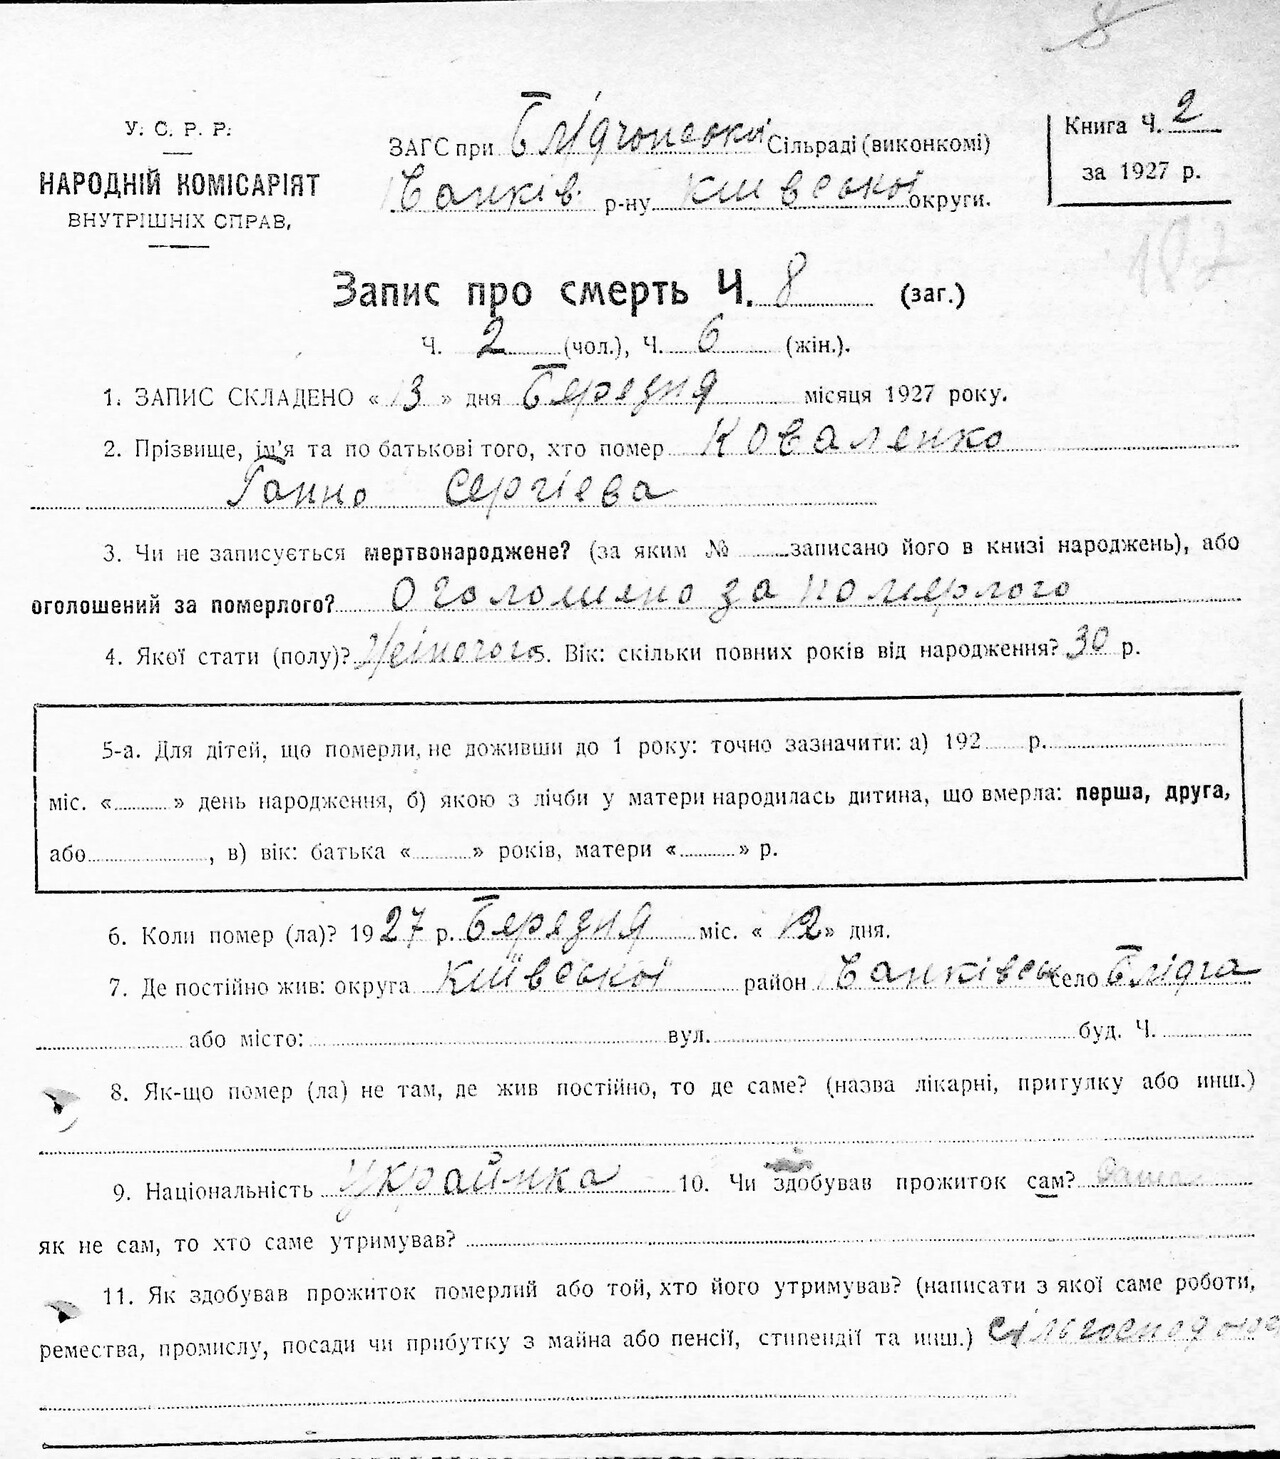 8
У. С. Р. Р.
НАРОДНІЙ КОМІСАРІЯТ
ВНУТРІШНІХ СПРАВ,
ЗАГС при Блідчопської Сільраді (виконкомі)
р-ну Київської округи.
Книга Ч. 2
за 1927 р.
187
Запис про смерть Ч. 8 (заг.)
Ч. 2 (чол.), Ч. 6 (жін.).
1. ЗАПИС СКЛАДЕНО « 13 » дня Березня місяця 1927 року.
2. Прізвище, ім'я та по батькові того, хто помер Коваленко
Ганно Сергієва
3. Чи не записується мертвонароджене? (за яким № записано його в книзі народжень), або
оголошений за померлого? Оголошено за померлого
4. Якої стати (полу)? Жіночого 5. Вік: скільки повних років від народження? 30 р.
5-а. Для дітей, що померли, не доживши до 1 року: точно зазначити: а) 192 р.
міс. « » день народження, б) якою з лічби у матери народилась дитина, що вмерла: перша, друга,
або , в) вік: батька « » років, матери « » р.
6. Коли помер (ла)? 1927 р. Березня міс. « 12 » дня.
7. Де постійно жив: округа Київської район село Блідча
або місто: вул. буд. Ч.
8. Як-що помер (ла) не там, де жив постійно, то де саме? (назва лікарні, притулку або инш.)
9. Національність Украйнка 10. Чи здобував прожиток сам? Сама
як не сам, то хто саме утримував?
11. Як здобував прожиток померлий або той, хто його утримував? (написати з якої саме роботи,
ремества, промислу, посади чи прибутку з майна або пенсії, стипендії та инш.)